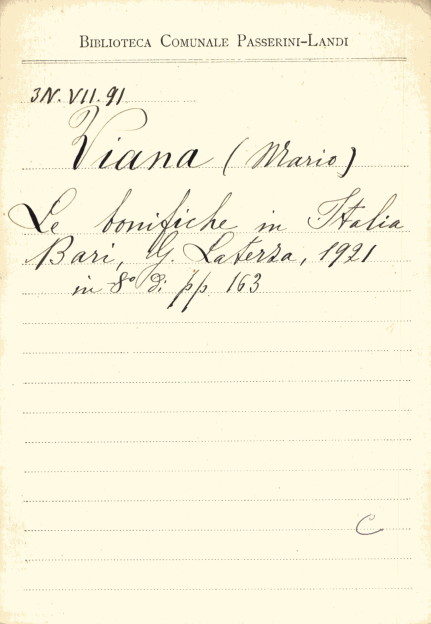 BIBLIOTECA COMUNALE PASSERINI-LANDI
3N.VII.91
Viana (Mario)
Le bonifiche in Italia
Bari, G. Laterza, 1921
in 8° di pp 163
C